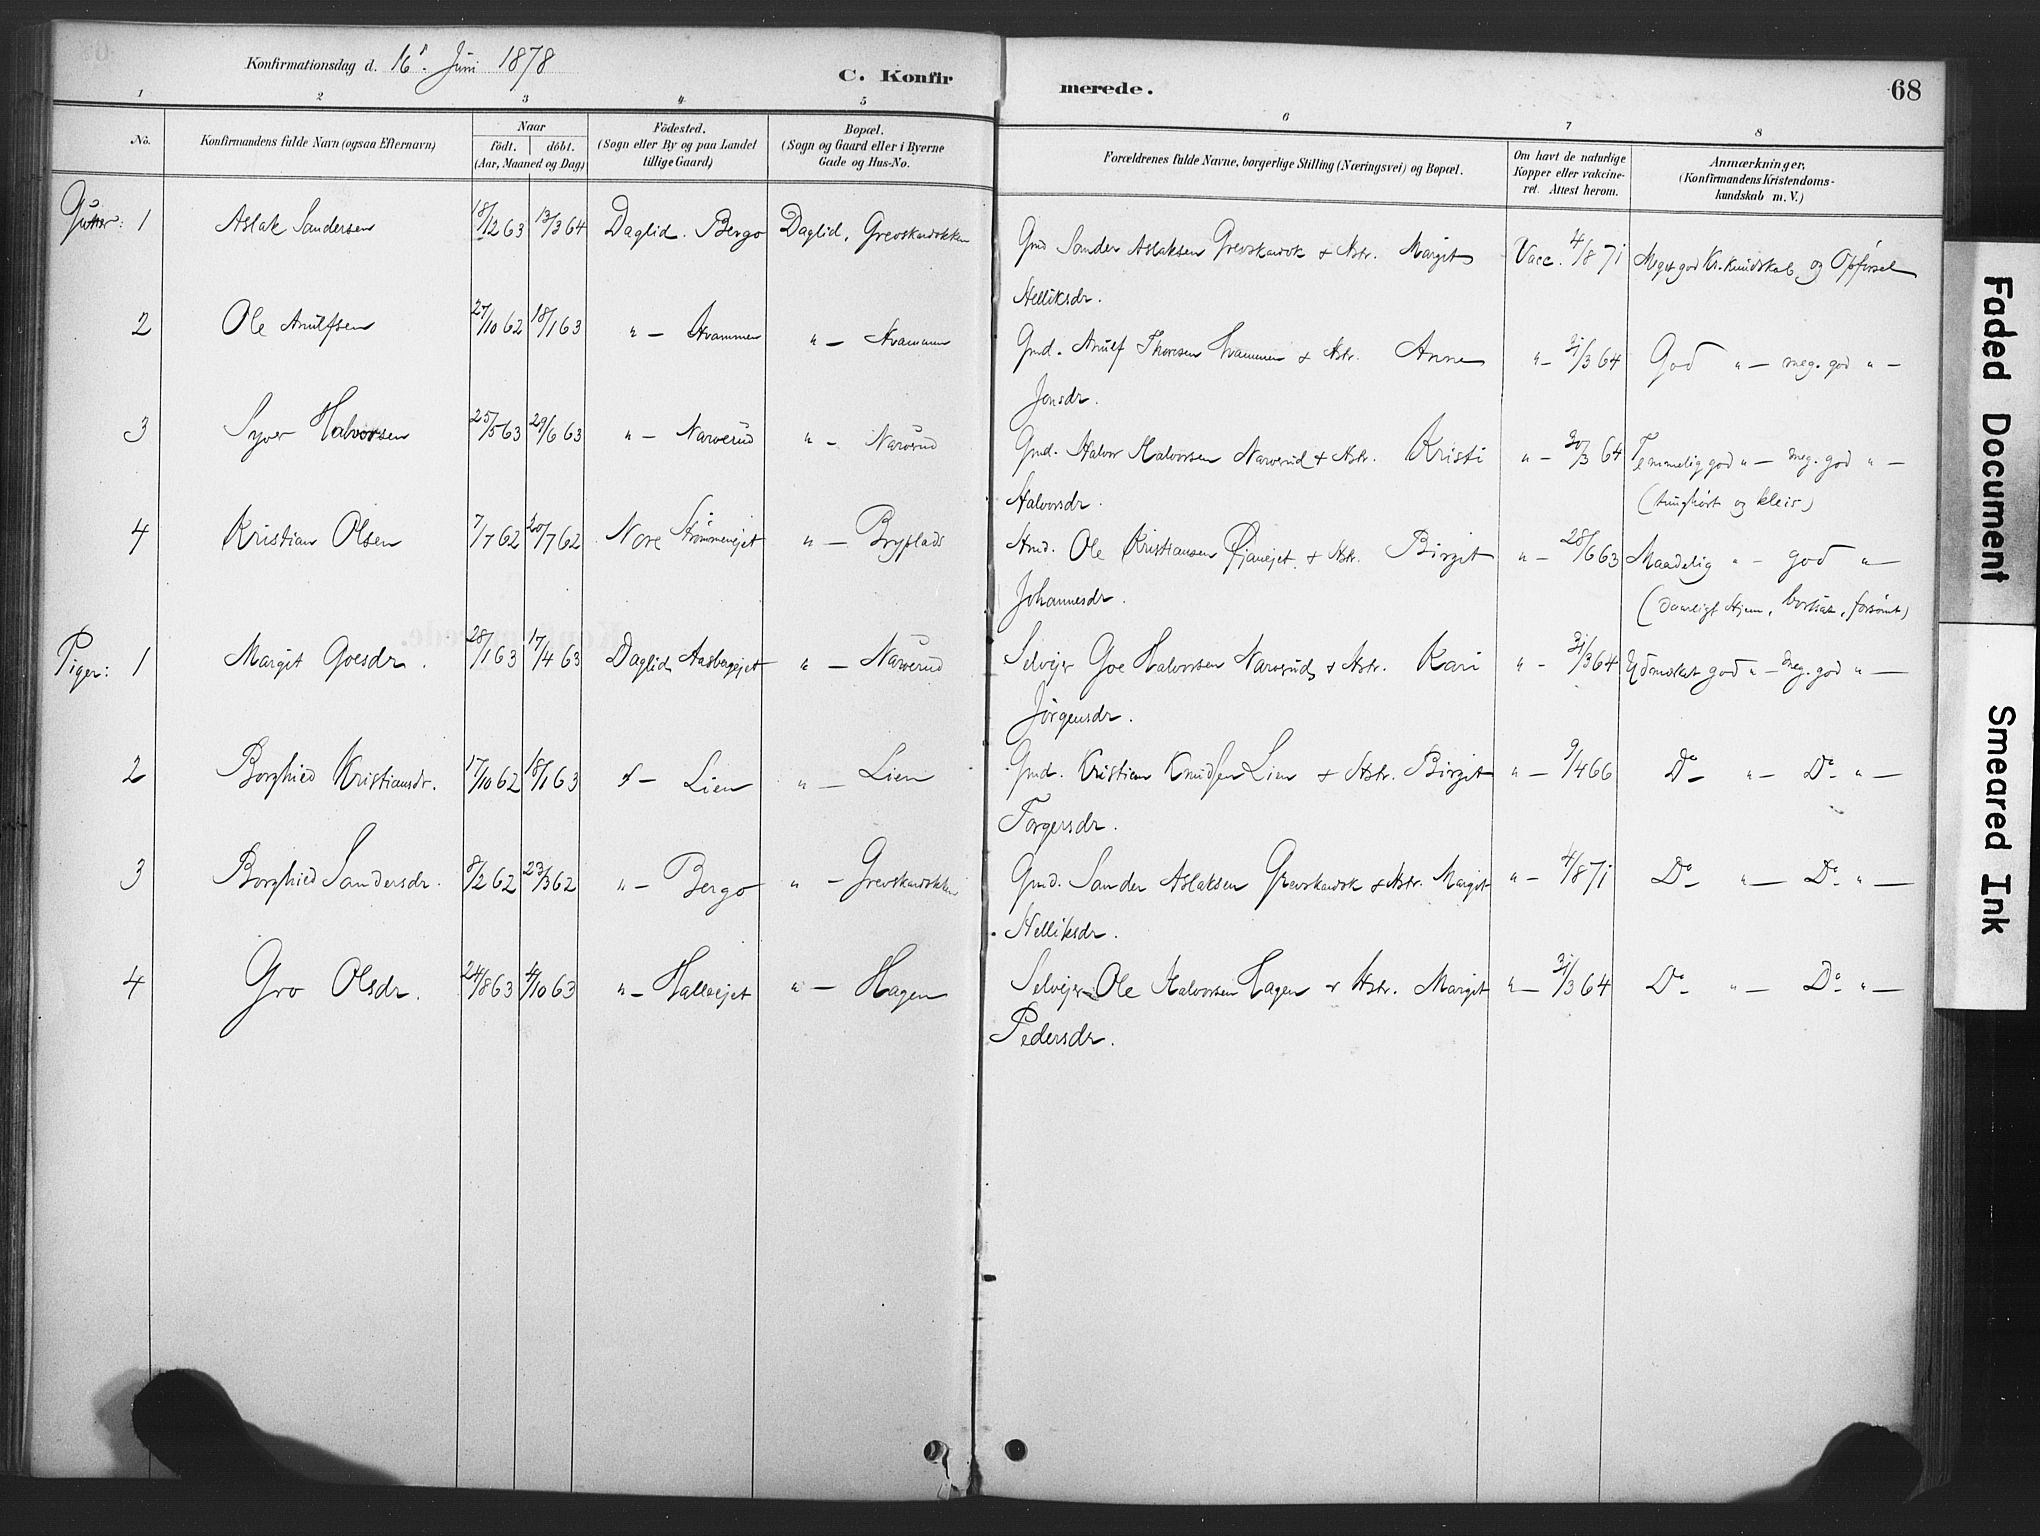 Konfirmationsdag d. 16. Juni 1878
C. Konfirmerede.
68
1 2 3 4 5 6 7 8
No.
Konfirmandens fulde Navn (ogsaa Efternavn)
Naar
födt. döbt.
(Aar, Maaned og Dag)
Födested.
(Sogn eller By og paa Landet
tillige Gaard)
Bopæl.
(Sogn og Gaard eller i Byerne
Gade og Hus-No.
Forældrenes fulde Navne, borgerlige Stilling (Næringsvei) og Bopæl.
Om havt de naturlige
Kopper eller vakcine-
ret. Attest herom.
Anmærkninger,
(Konfirmandens Kristendoms-
kundskab m. V.)
1 Aslak Sandersen 18/12 63 13/3 64 Daglid. Bergo Daglid, Grevskardokken Gmd Sander Aslaksen Grevskardok & Hstr. Margit Vacc. 4/8 71 Meget god Kr. kundskab og Opførsel
Helliksdr.
2 Ole Arnulfsen 27/10 62 18/1 63 " — Hvammen " — Hvammen Gmd. Arnulf Thoresen Hvammen & Hstr. Anne " — 31/3 64 God " — meg. god " —
Jonsdr.
3 Syver Halvorsen 25/5 63 29/6 63 " — Narverud " — Narverud Gmd. Halvor Halvorsen Narverud & Hstr. Kristi " — 30/3 64 Temmelig god " — meg. god " —
Halvorsdr. (tunghørt og kleis)
4 Kristian Olsen 7/7 62 20/7 62 Nore Strømmenejet " — Bryglads Hmd. Ole Kristiansen & Hstr. Birgit " — 28/6 63 Maadelig " — god " —
Johannesdr. (daarligt Hjem, bortsat, forsømt)
Piger: 1 Margit Goesdr. 28/1 63 17/4 63 Daglid Aasbergejet " — Narverud Selvejer Goe Halvorsen Narverud & Hstr. Kari " — 31/3 64 Udmærket god " — meg. god " —
Jørgensdr.
2 Borghied Kristiansdr. 17/10 62 18/1 63 " — Lien " — Lien Gmd. Kristian Knudsen Lien & Hstr. Birgit " — 9/4 66 Do — " — Do — " —
Torgersdr.
3 Borghied Sandersdr. 8/2 62 23/3 62 " — Bergo " — Grevskardokken Gmd. Sander Aslaksen Grevskardok & Hstr. Margit " — 4/8 71 Do — " — Do — " —
Helliksdr.
4 Gro Olsdr. 24/8 63 4/10 63 " — Hallvejet " — Hagen Selvejer Ole Halvorsen Hagen & Hstr. Margit " — 31/3 64 Do — " — Do — " —
Pedersdr.
Faded Document
Smeared Ink